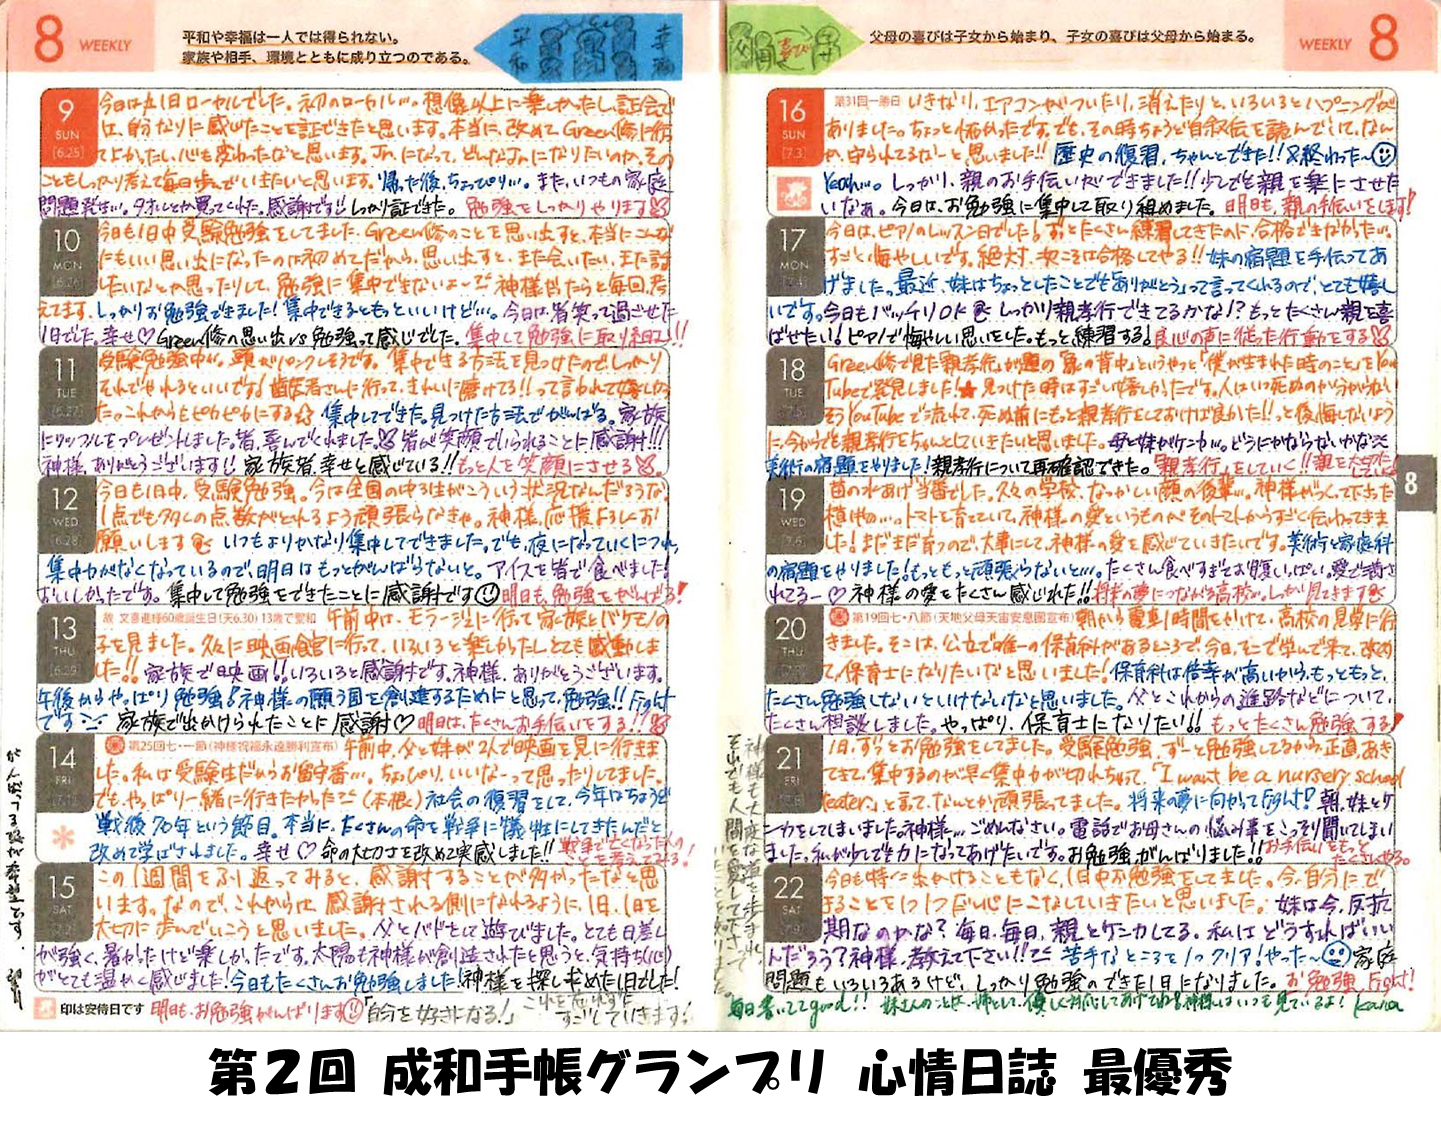 8 WEEKLY
平和や幸福は一人では得られない。
家族や相手、環境とともに成り立つのである。
平和
幸福
9
SUN
[6.25]
今日は1日ローカルでした。初のローカル…。想像以上に楽しかったし、証会で
は、自分なりに感じたことを証できたと思います。本当に、改めてGreen修に行っ
てよかったし、心も変わったなと思います。Jr.になって、どんなJr.になりたいのか、その
こともしっかり考えて毎日歩んでいきたいと思います。帰った後、ちょっぴり…。また、いつもの家庭
問題発生…。夕ホしとか買ってくれた。感謝です!!しっかり証できた。勉強をしっかりやります
10
MON
今日も1日中受験勉強をしてました。Green修のことを思い出すと、本当にこんな
にもいい思い出になったのは初めてだから、思い出すと、また会いたい、また話
したいなとか思ったりして、勉強に集中できないよ〜 神様だったらと毎回、考
えてます。しっかりお勉強できました!集中できるともっといいけど…。今日は、皆笑って過ごせた
1日でした。幸せ♡Green修の思い出VS勉強って感じでした。集中して勉強に取り組む!!
11
TUE
[6.27]
受験勉強中が、頭がパンクしそうです。集中できる方法を見つけたのでしっかり
それでやれるといいです!歯医者さんに行って、きれいに磨けてる!!って言われて嬉しかっ
た。これからもピカピカにする☆ 集中してできた。見つけた方法でがんばる。家族
にワッフルをプレゼントしました。皆、喜んでくれました。皆が笑顔でいられることに感謝!!!
神様、ありがとうございます!!家族皆、幸せと感じている!!もっと人を笑顔にさせる
12
WED
[6.28]
今日も1日中、受験勉強。今は全国の中3生がこういう状況なんだろうな。
1点でも多くの点数がとれるよう頑張らなきゃ。神様、応援よろしくお
願いします いつもよりかなり集中してできました。でも、夜になっていくにつれ、
集中力がなくなっているので、明日はもっとがんばらないと。アイスを皆で食べました!
おいしかったです。集中して勉強をできたことに感謝です 明日も、勉強をがんばる!
13
THU
[6.29]
故 文喜進様60歳誕生日(天6.30)13歳で聖和
午前中は、モラージュに行って家族とバケモノの
子を見ました。久々に映画館に行って、いろいろと楽しかったしとても感動しま
した!!家族で映画!!いろいろと感謝です。神様、ありがとうございます。
午後からやっぱり勉強!神様の願う国を創造するためにと思って、勉強!!Fight
です 家族で出かけられたことに感謝♡明日は、たくさんお手伝いをする!!
14
FRI
第25回七・一節(神様祝福永遠勝利宣布)
午前中、父と妹が2人で映画を見に行きま
した。私は受験生だからお留守番…。ちょっぴり、いいなーって思ったりしてました。
でも、やっぱり一緒に行きたかった(本根)社会の復習をして、今年はちょうど
戦後70年という節目。本当に、たくさんの命を戦争に犠牲にしてきたんだと
改めて学ばされました。幸せ♡命の大切さを改めて実感しました!!戦争で亡くなった人の
ことを考えてみる!
15
SAT
この1週間をふり返ってみると、感謝することが多かったなと思
います。なので、これからは、感謝される側になれるように、1日、1日を
大切に歩んでいこうと思いました。父とバドとして遊びました。とても日差し
が強く、暑かったけど楽しかったです。太陽も神様が創造されたと思うと、気持ち(心)
がとても温かく感じました!今日もたくさんお勉強しました!神様を探し求めた1日でした!
印は安侍日です 明日も、お勉強がんばります 「自分を好きになる!」
これを忘れずに
すごしていきます!
がんばってる姿が希望です。
8 WEEKLY
父母の喜びは子女から始まり、子女の喜びは父母から始まる。
父母
喜び
子
16
SUN
[7.3]
第31回一勝日 いきなり、エアコンがついたり、消えたりと、いろいろとハプニングが
ありました。ちょっと怖かったです。でも、その時ちょうど自叙伝を読んでいて、なん
か、守られてるなーと思いました!!歴史の復習、ちゃんとできた!!
Yeah…。しっかり、親のお手伝いができました!!少しでも親を楽にさせた
いなぁ。今日は、お勉強に集中して取り組めました。明日も、親の手伝いをします!
17
MON
今日は、ピアノのレッスン日でした!ずっとたくさん練習してきたのに、合格できなかった…。
すごく悔やしいです。絶対、次こそは合格してやる!!妹の宿題を手伝ってあ
げました。最近、妹はちょっとしたことでもありがとうって言ってくれるので、とても嬉し
いです。今日もバッチリOK しっかり親孝行できてるかな!?もっとたくさん親を喜
ばせたい!ピアノで悔やしい思いをした。もっと練習する!良心の声に従った行動をする
18
TUE
Green修で見た親孝行が題の「家の背中」というやつと「僕が生まれた時のこと」をYou
Tubeで発見しました!★見つけた時はすごい嬉しかったです。人はいつ死ぬのか分からない
そうYouTubeで流れて、死ぬ前にもっと親孝行をしておけば良かた!!と後悔しないよう
に、今からでも親孝行をちゃんとしていきたいと思いました。母と妹がケンカ…。どうにかならないかな
美術の宿題をやりました!親孝行について再確認できた。「親孝行」をしていく!!
19
WED
苗の水あげ当番でした。久々の学校、なつかしい顔の後輩…。神様がつくって下さった
植物…。トマトを育てていて、神様の愛というものがそのトマトからすごく伝わってきま
した!まだまだ育つので、大事にして、神様の愛を感じていきたいです。美術と家庭科
の宿題をやりました!もっともっと頑張らないと…。たくさん食べすぎてお腹いっぱい。愛で満さ
れてるー♡神様の愛をたくさん感じれた!!将来の夢につながる高校…。しっかり見てきます
20
THU
第19回七・八節(天地父母天宙安息圏宣布)
朝から電車1時間をかけて、高校の見学に行
きました。そこは、公立で唯一の保育科があるところで、今日、そこで学んで来て、改め
て、保育士になりたいなと思いました!保育科は倍率が高いから、もっともっと、
たくさん勉強しないといけないなと思いました。父とこれからの進路などについて、
たくさん相談しました。やっぱり、保育士になりたい!!もっとたくさん勉強する!
21
FRI
1日、ずっとお勉強をしてました。受験勉強、ずーと勉強してるから正直、あき
てきて、集中するのが早く集中力が切れちゃって、「I want be a nursery school
teater.」と言って、なんとか頑張ってました。将来の夢に向かってFight!!朝、妹とケ
ンカをしてしまいました。神様…ごめんなさい。電話でお母さんの悩み事をこっそり聞いてしまい
ました。私が少しでも力になってあげたいです。お勉強がんばりました!!お手伝いをもっと
たくさんやる。
22
SAT
今日も特に出かけることもなく、1日中お勉強をしてました。今、自分にで
きることを1つ1つていねいにこなしていきたいと思いました。妹は今、反抗
期なのかな?毎日、毎日、親とケンカしてる。私はどうすればいい
んだろう?神様、教えて下さい!! 苦手なところを1つクリア!やったー 家庭
問題もいろいろあるけど、しっかり勉強のできた1日になりました。お勉強、Fight!
毎日書いててgood!! 妹さんのことは、姉として、優しく対応してあげてね。神様はいつも見ているよ! Kana
8
第2回 成和手帳グランプリ 心情日誌 最優秀